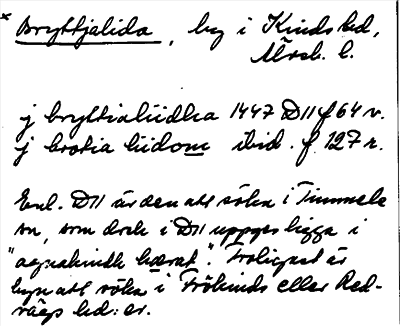 * Bryttjalida, by i Kinds hd,
Älvsb. l.
j bryttialiidha 1447 D11 f 64 v.
j brotia liidom ibid. f 127 r.
Enl. D11 är den att söka i Timmele
sn, som dock i D11 uppges ligga i
"aegnahindh hærat". Troligast är
byn att söka i Frökinds eller Red-
vägs hd: er.